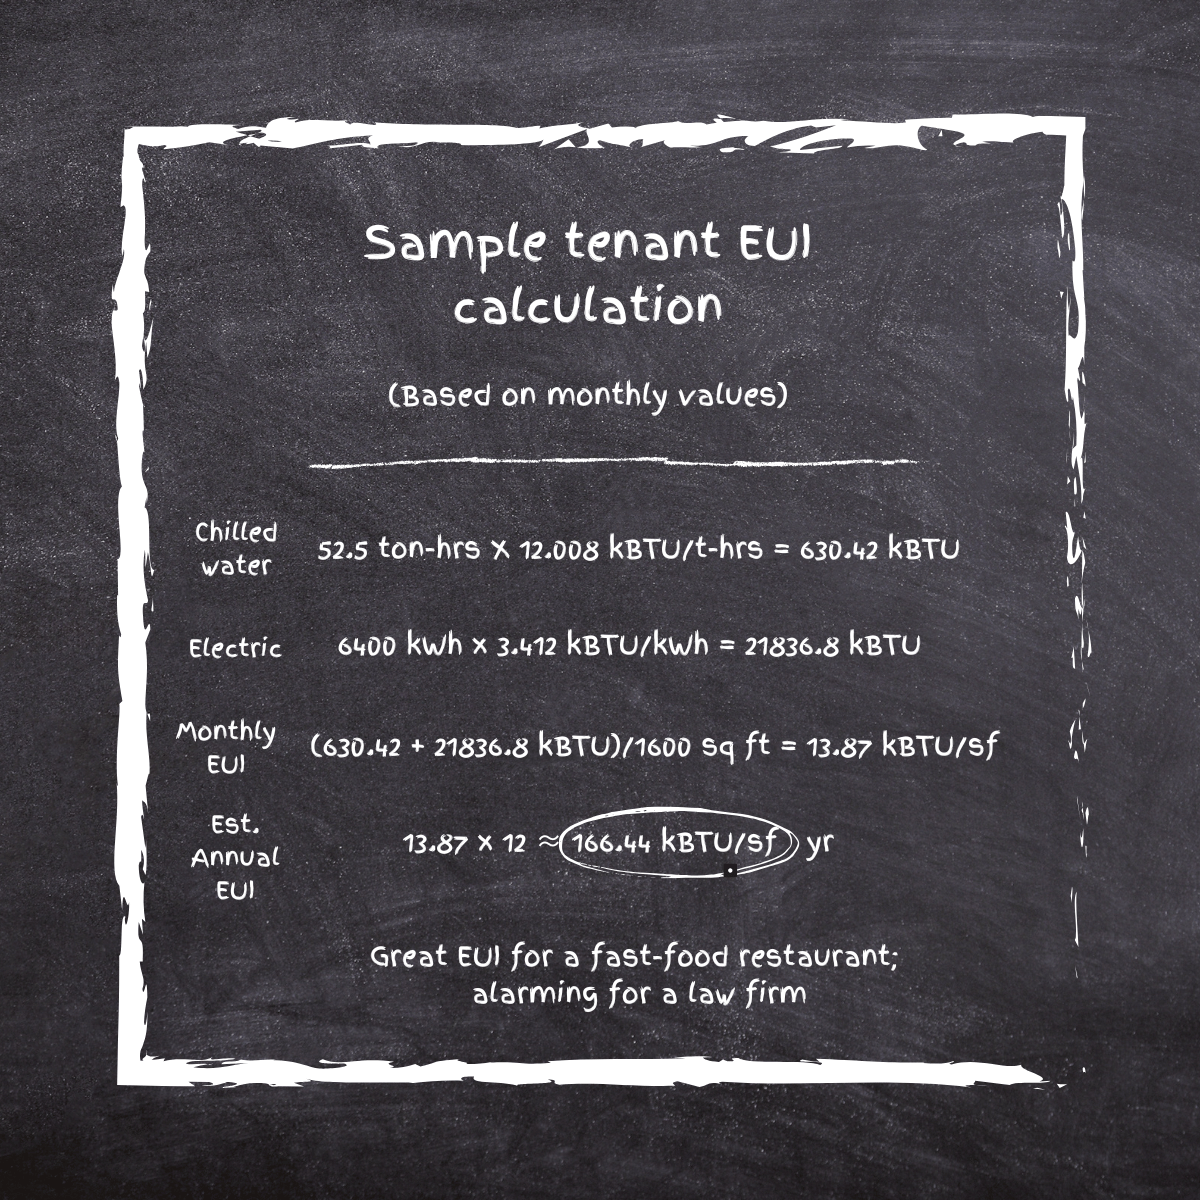 Sample tenant EUI
calculation
(Based on monthly values)
Chilled
water
52.5 ton-hrs X 12.008 kBTU/t-hrs = 630.42 kBTU
Electric
6400 kWh x 3.412 kBTU/kWh = 21836.8 kBTU
Monthly
EUI
(630.42 + 21836.8 kBTU)/1600 sq ft = 13.87 kBTU/sf
Est.
Annual
EUI
13.87 x 12 ≈ 166.44 kBTU/sf yr
Great EUI for a fast-food restaurant;
alarming for a law firm